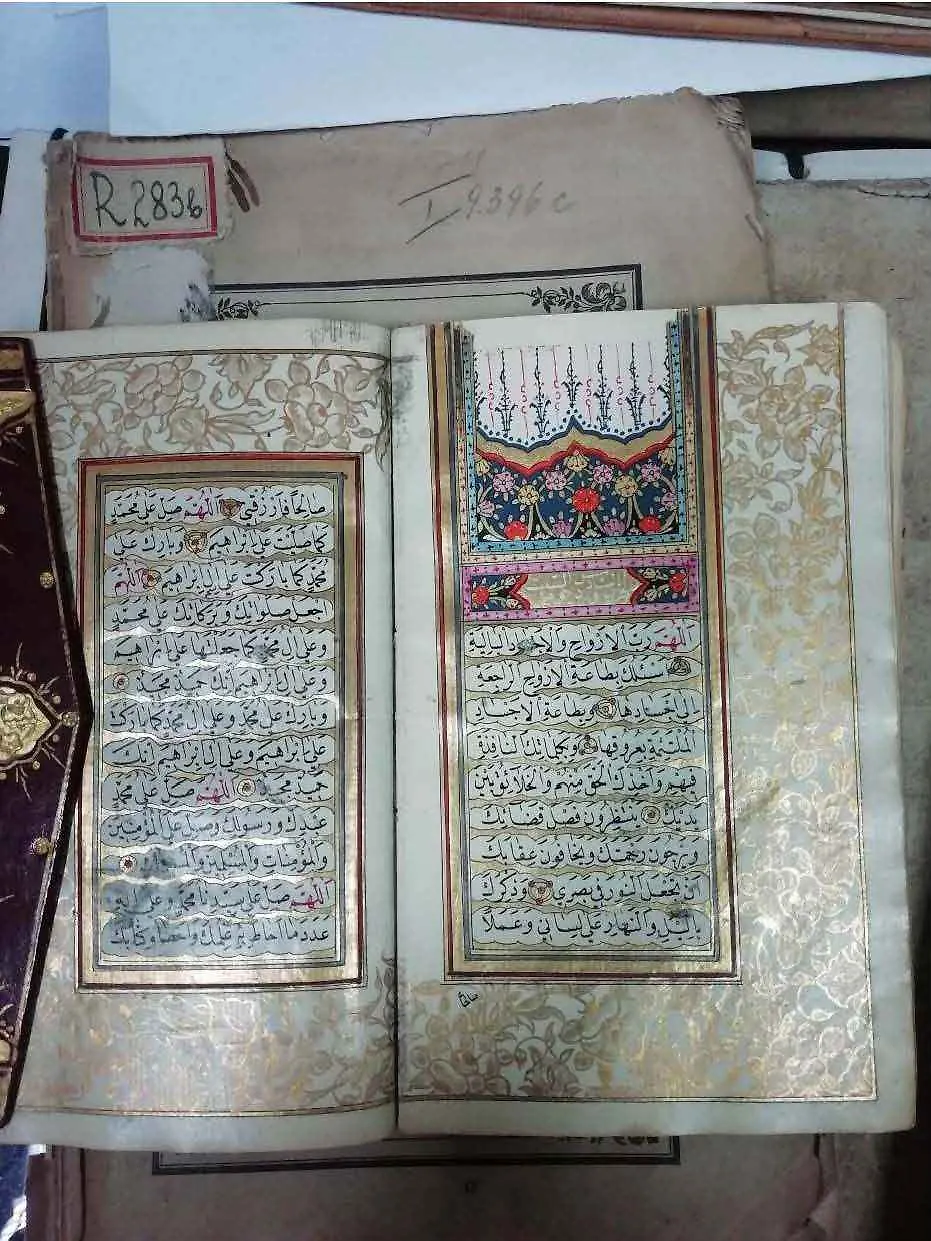 R 283b
I 9.396 c
اَللّٰهُمَّ رَبَّ الْاَرْوَاحِ وَالْاَجْسَادِ الْبَالِيَةِ
اَسْئَلُكَ بِطَاعَةِ الْاَرْوَاحِ الرَّاجِعَةِ
اِلٰى اَجْسَادِهَا وَبِطَاعَةِ الْاَجْسَادِ
الْمُلْتَئِمَةِ بِعُرُوقِهَا وَبِكَلِمَاتِكَ النَّافِذَةِ
فِيهِمْ وَاَخْذِكَ الْحَقَّ مِنْهُمْ وَالْخَلَائِقُ بَيْنَ
يَدَيْكَ يَنْتَظِرُونَ فَصْلَ قَضَائِكَ
وَيَرْجُونَ رَحْمَتَكَ وَيَخَافُونَ عِقَابَكَ
اَنْ تَجْعَلَ النُّورَ فِي بَصَرِي وَذِكْرَكَ
بِاللَّيْلِ وَالنَّهَارِ عَلٰى لِسَانِي وَعَمَلًا
صالحا
صَالِحًا فَارْزُقْنِي اَللّٰهُمَّ صَلِّ عَلٰى مُحَمَّدٍ
كَمَا صَلَّيْتَ عَلٰى اِبْرَاهِيمَ وَبَارِكْ عَلٰى
مُحَمَّدٍ كَمَا بَارَكْتَ عَلٰى اٰلِ اِبْرَاهِيمَ اَللّٰهُمَّ
اجْعَلْ صَلَوَاتِكَ وَبَرَكَاتِكَ عَلٰى مُحَمَّدٍ
وَعَلٰى اٰلِ مُحَمَّدٍ كَمَا جَعَلْتَهَا عَلٰى اِبْرَاهِيمَ
وَعَلٰى اٰلِ اِبْرَاهِيمَ اِنَّكَ حَمِيدٌ مَجِيدٌ
وَبَارِكْ عَلٰى مُحَمَّدٍ وَعَلٰى اٰلِ مُحَمَّدٍ كَمَا بَارَكْتَ
عَلٰى اِبْرَاهِيمَ وَعَلٰى اٰلِ اِبْرَاهِيمَ اِنَّكَ
حَمِيدٌ مَجِيدٌ اَللّٰهُمَّ صَلِّ عَلٰى مُحَمَّدٍ
عَبْدِكَ وَرَسُولِكَ وَصَلِّ عَلَى الْمُؤْمِنِينَ
وَالْمُؤْمِنَاتِ وَالْمُسْلِمِينَ وَالْمُسْلِمَاتِ
اَللّٰهُمَّ صَلِّ عَلٰى سَيِّدِنَا مُحَمَّدٍ وَعَلٰى اٰلِهِ
عَدَدَ مَا اَحَاطَ بِهِ عِلْمُكَ وَاَحْصَاهُ كِتَابُكَ